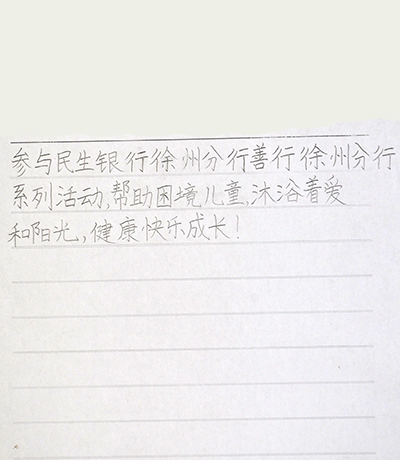 参与民生银行徐州分行善行徐州分行
系列活动,帮助困境儿童,沐浴着爱
和阳光,健康快乐成长!